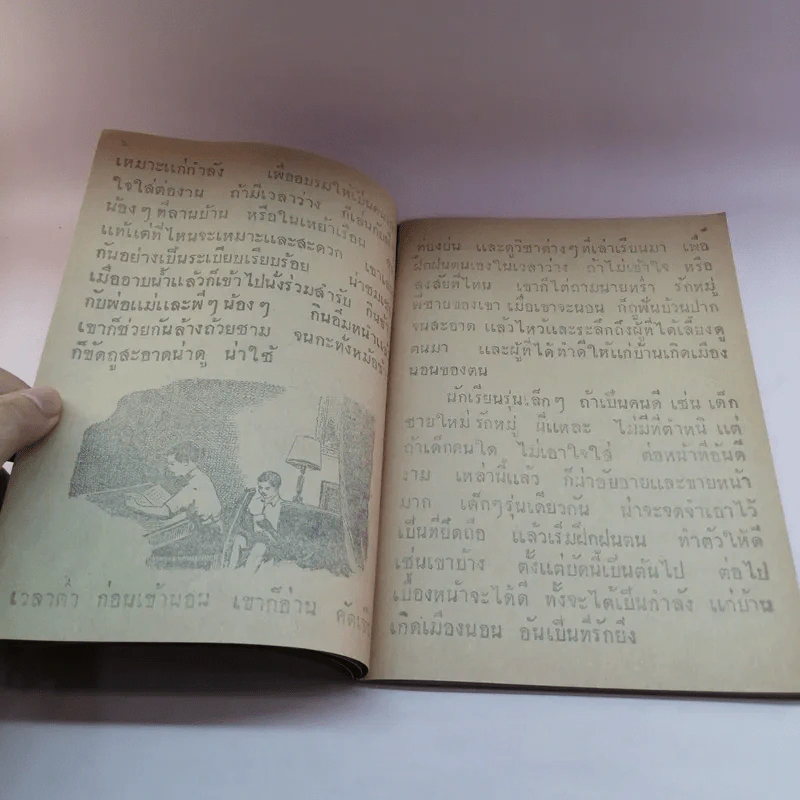 เหมาะแก่กำลัง เพื่ออบรมให้เป็นคน
ใจใส่ต่องาน ถ้ามีเวลาว่าง ก็เล่นกับ
น้องๆ ที่ลานบ้าน หรือในเหย้าเรือน
แท้แต่ที่ไหนจะเหมาะและสะดวก เขา
กันอย่างเป็นระเบียบเรียบร้อย น่าชม
เมื่ออาบน้ำแล้วก็เข้าไปนั่งร่วมสำรับ กิน
กับพ่อแม่และพี่ๆ น้องๆ กินอิ่มหนำ
เขาก็ช่วยกันล้างถ้วยชาม จนกะทั่งหม้อ
ก็ขัดถูสะอาดน่าดู น่าใช้
เวลาค่ำ ก่อนเข้านอน เขาก็อ่าน คัด
ท่องบ่น และดูวิชาต่างๆ ที่เล่าเรียนมา เพื่อ
ฝึกฝนตนเองในเวลาว่าง ถ้าไม่เข้าใจ หรือ
สงสัยที่ไหน เขาก็ไต่ถามนายหร่ำ รักหมู่
พี่ชายของเขา เมื่อเขาจะนอน ก็ถูฟันบ้วนปาก
จนสะอาด แล้วไหว้และระลึกถึงผู้ที่ได้เลี้ยงดู
ตนมา และผู้ที่ได้ทำดีให้แก่บ้านเกิดเมือง
นอนของตน
นักเรียนรุ่นเล็กๆ ถ้าเป็นคนดี เช่น เด็ก
ชายใหม่ รักหมู่ นี่แหละ ไม่มีที่ตำหนิ แต่
ถ้าเด็กคนใด ไม่เอาใจใส่ ต่อหน้าที่อันดี
งาม เหล่านี้แล้ว ก็น่าอัปอายและขายหน้า
มาก เด็กๆ รุ่นเดียวกัน น่าจะจดจำเอาไว้
เป็นที่ยึดถือ แล้วเริ่มฝึกฝนตน ทำตัวให้ดี
เช่นเขาบ้าง ตั้งแต่บัดนี้เป็นต้นไป ต่อไป
เบื้องหน้าจะได้ดี ทั้งจะได้เป็นกำลัง แก่บ้าน
เกิดเมืองนอน อันเป็นที่รักยิ่ง